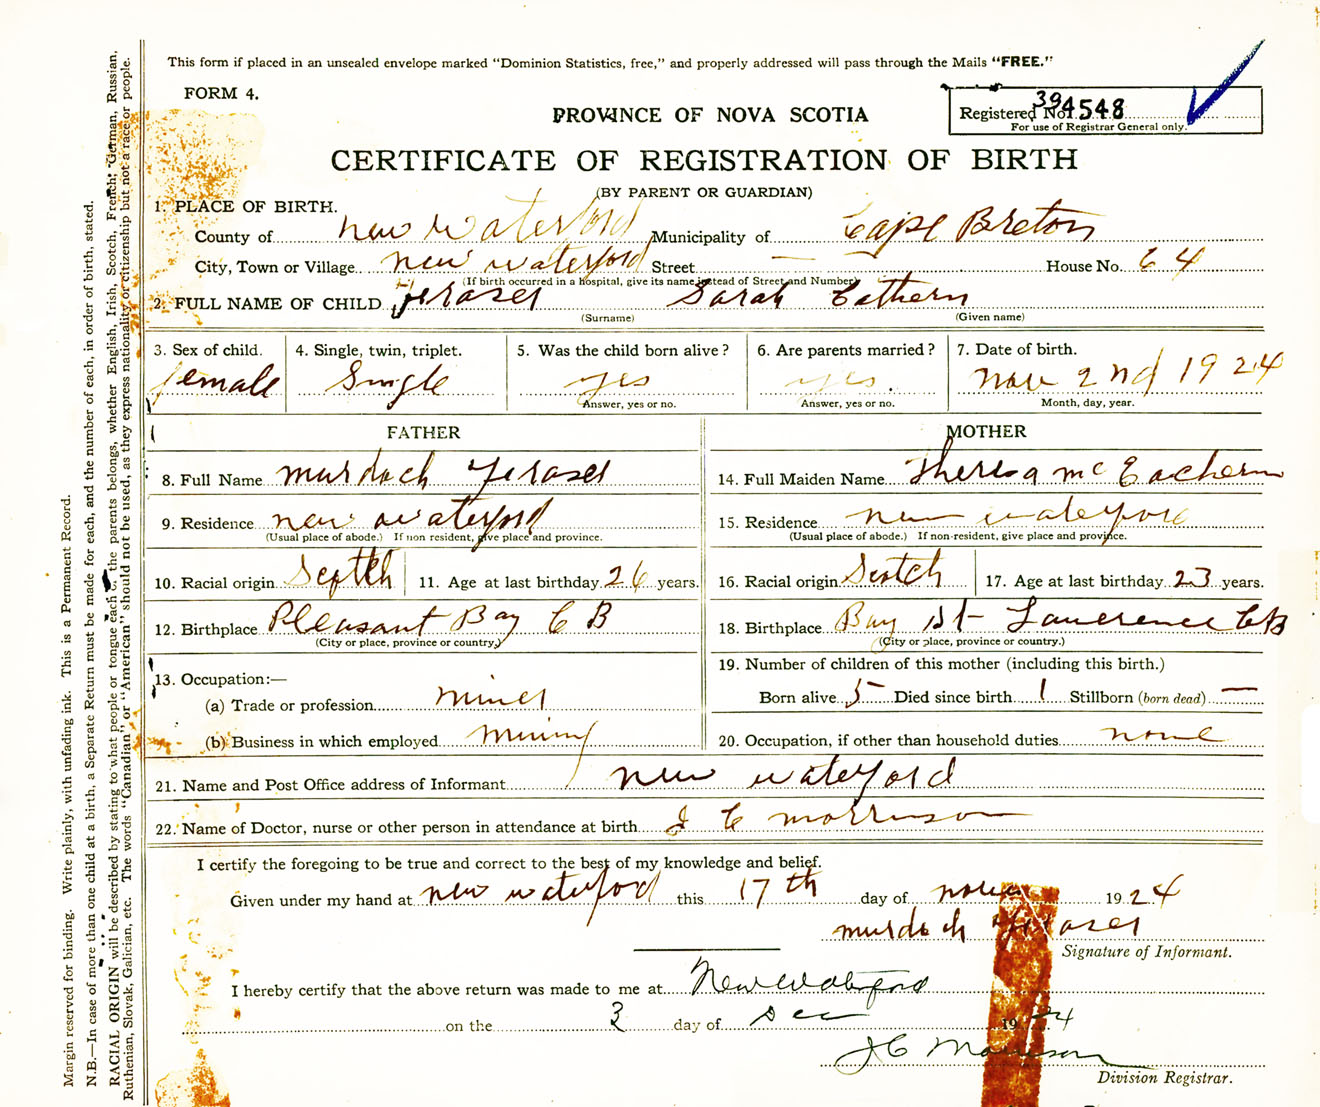 This form if placed in an unsealed envelope marked "Dominion Statistics, free," and properly addressed will pass through the Mails "FREE."
FORM 4.
PROVINCE OF NOVA SCOTIA
Registered No. 394548
For use of Registrar General only.
CERTIFICATE OF REGISTRATION OF BIRTH
(BY PARENT OR GUARDIAN)
1. PLACE OF BIRTH.
County of New Waterford Municipality of Cape Breton
City, Town or Village New Waterford Street — House No. 64
(If birth occurred in a hospital, give its name instead of Street and Number)
2. FULL NAME OF CHILD Fraser Sarah Cathern
(Surname) (Given name)
3. Sex of child. 4. Single, twin, triplet. 5. Was the child born alive? 6. Are parents married? 7. Date of birth.
female Single yes yes. Nov 2nd 1924
Answer, yes or no. Answer, yes or no. Month, day, year.
FATHER MOTHER
8. Full Name Murdoch Fraser 14. Full Maiden Name Theresa McEachern
9. Residence New Waterford 15. Residence New Waterford
(Usual place of abode.) If non resident, give place and province. (Usual place of abode.) If non-resident, give place and province.
10. Racial origin Scotch 11. Age at last birthday 26 years. 16. Racial origin Scotch 17. Age at last birthday 23 years.
12. Birthplace Pleasant Bay C B 18. Birthplace Bay St Lawerence CB
(City or place, province or country.) (City or place, province or country.)
13. Occupation:— 19. Number of children of this mother (including this birth.)
(a) Trade or profession Miner Born alive 5 Died since birth 1 Stillborn (born dead) —
(b) Business in which employed Mining 20. Occupation, if other than household duties none
21. Name and Post Office address of Informant New Waterford
22. Name of Doctor, nurse or other person in attendance at birth J C Morrison
I certify the foregoing to be true and correct to the best of my knowledge and belief.
Given under my hand at New Waterford this 17th day of 1924
Murdoch Fraser
Signature of Informant.
I hereby certify that the above return was made to me at New Waterford
on the 3 day of Dec 1924
J C Morrison
Division Registrar.
Margin reserved for binding. Write plainly, with unfading ink. This is a Permanent Record.
N.B.—In case of more than one child at a birth, a Separate Return must be made for each, and the number of each, in order of birth, stated.
RACIAL ORIGIN will be described by stating to what people or tongue each of the parents belongs, whether English, Irish, Scotch, French, German, Russian,
Ruthenian, Slovak, Galician, etc. The words "Canadian" or "American" should not be used, as they express nationality or citizenship but not a race or people.